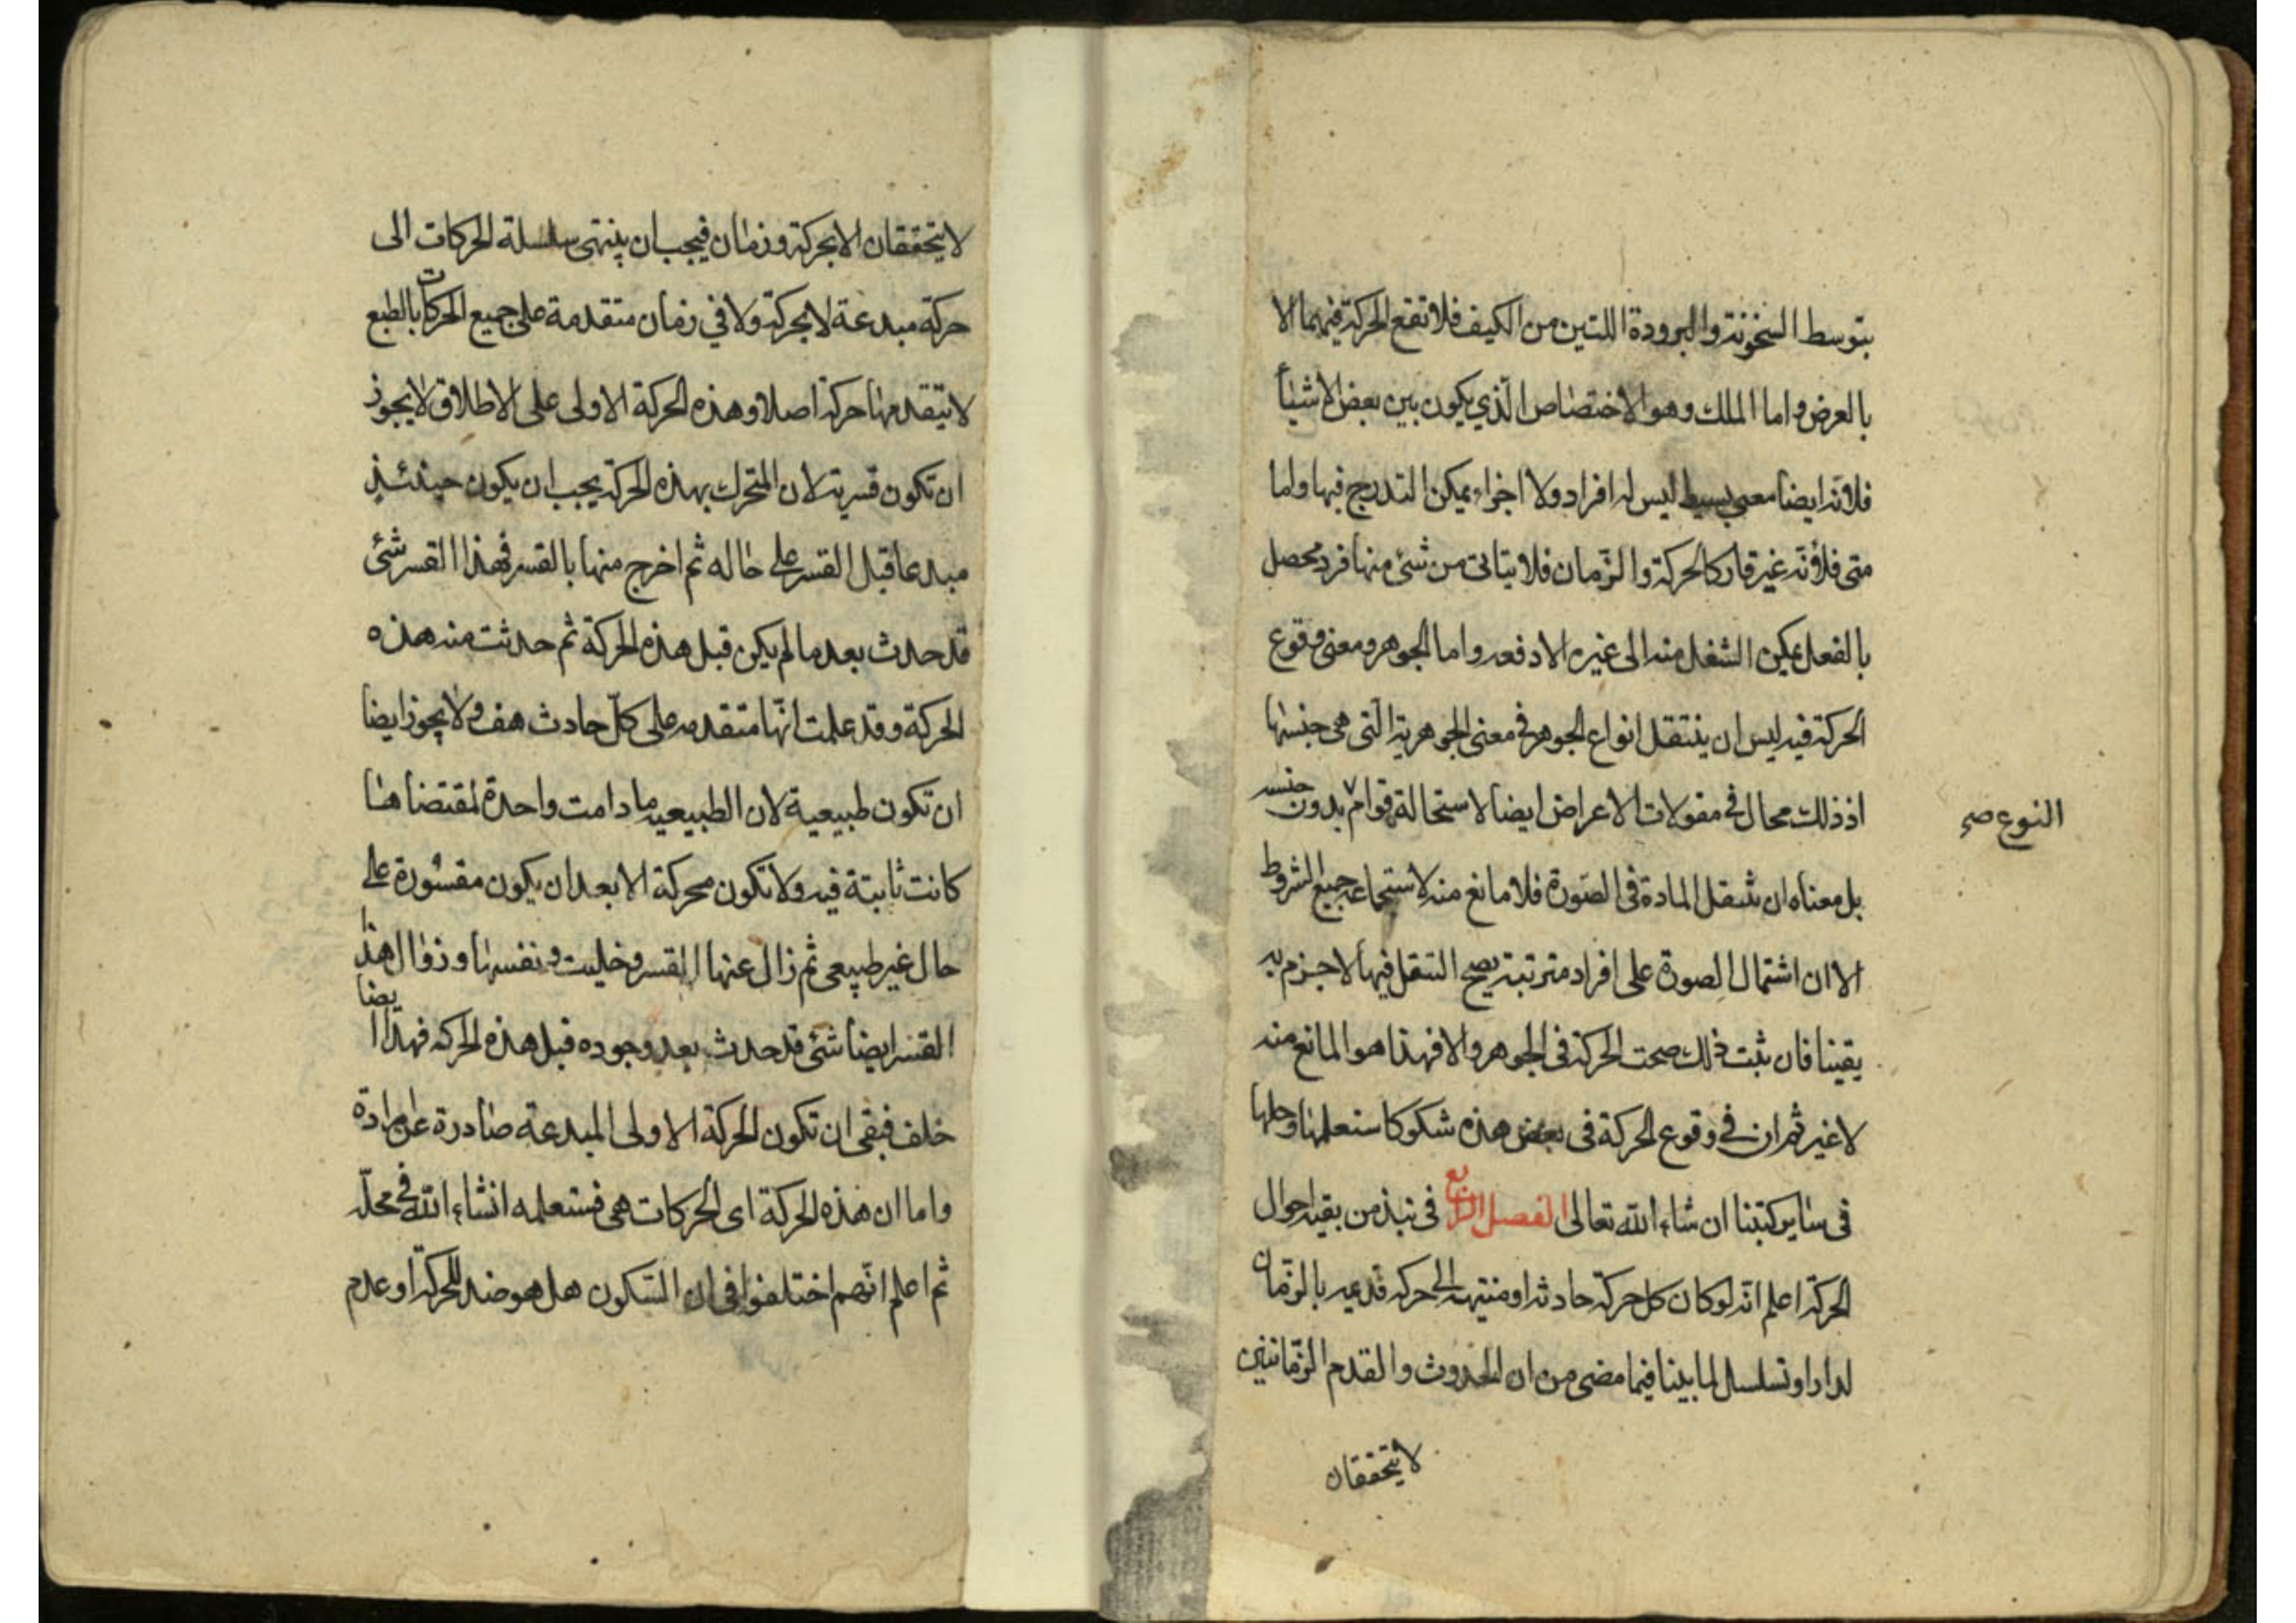 بتوسط السخونة والبرودة اللتين من الكيف فلا تقع الحركة فيهما الا
بالعرض واما الملك وهو الاختصاص الّذي يكون بين بعض الاشيأ
فلانّه ايضا معنى بسيط ليس له افراد ولا اجزاء يمكن التدرج فيها واما
متى فلانّه غير قار كالحركة والزّمان فلا يتاتى من شئ منها فرد محصل
بالفعل يمكن الشغل منه الى غيره الا دفعه واما الجوهر ومعنى وقوع
الحركة فيه ليس ان ينتقل انواع الجوهر في معنى الجوهرية الّتى هى جنسها
اذ ذلك محال فى مقولات الاعراض ايضا لاستحالة قوام بدون جنسه
النوع صح
بل معناه ان تنتقل المادة فى الصّورة فلا مانع منه لاستجماعه جميع الشروط
الا ان اشتمال الصورة على افراد مترتبة يصح التنقل فيها لا جزم به
يقينا فان ثبت ذلك صحت الحركة فى الجوهر والا فهذا هو المانع منه
لا غير ثم ان فى وقوع الحركة فى بعض هذه شكوكا ستعلمها وحلها
فى ساير كتبنا ان شاء اللّه تعالى الفصل الرّابع فى نبذ من بقية احوال
الحركة اعلم انّه لو كان كل حركة حادثة او منتهية الى حركة قديمه بالزّمان
لدار او تسلسل لما بينا فيما مضى من ان الحدوث والقدم الزّمانيين
لا يتحققان
لا يتحققان الا بحركة وزمان فيجب ان ينتهى سلسلة الحركات الى
حركة مبدعة لا بحركة ولا في زمان متقدمة على جميع الحركات بالطبع
لا يتقدمها حركة اصلا وهذه الحركة الاولى على الاطلاق لا يجوز
ان تكون قسرية لان المتحرك بهذه الحركة يجب ان يكون حينئذ
مبدعا قبل القسر على حاله ثم اخرج منها بالقسر فهذا القسر شئ
قد حدث بعد ما لم يكن قبل هذه الحركة ثم حدثت منه هذه
الحركة وقد علمت انّها متقدمه على كلّ حادث هف ولا يجوز ايضا
ان تكون طبيعية لان الطبيعيه ما دامت واحدة لمقتضاها
كانت ثابتة فيه ولا تكون محركة الا بعد ان يكون مقسورة على
حال غير طبيعى ثم زال عنها القسر وخليت ونفسها وزوال هذا
القسر ايضا شئ قد حدث بعد وجوده قبل هذه الحركه فهذا ايضا
خلف فبقى ان تكون الحركة الاولى المبدعة صادرة عن ارادة
واما ان هذه الحركة اى الحركات هى فستعلمه انشاء اللّه فى محلّه
ثم اعلم انّهم اختلفوا فى ان السّكون هل هو ضد للحركة او عدم